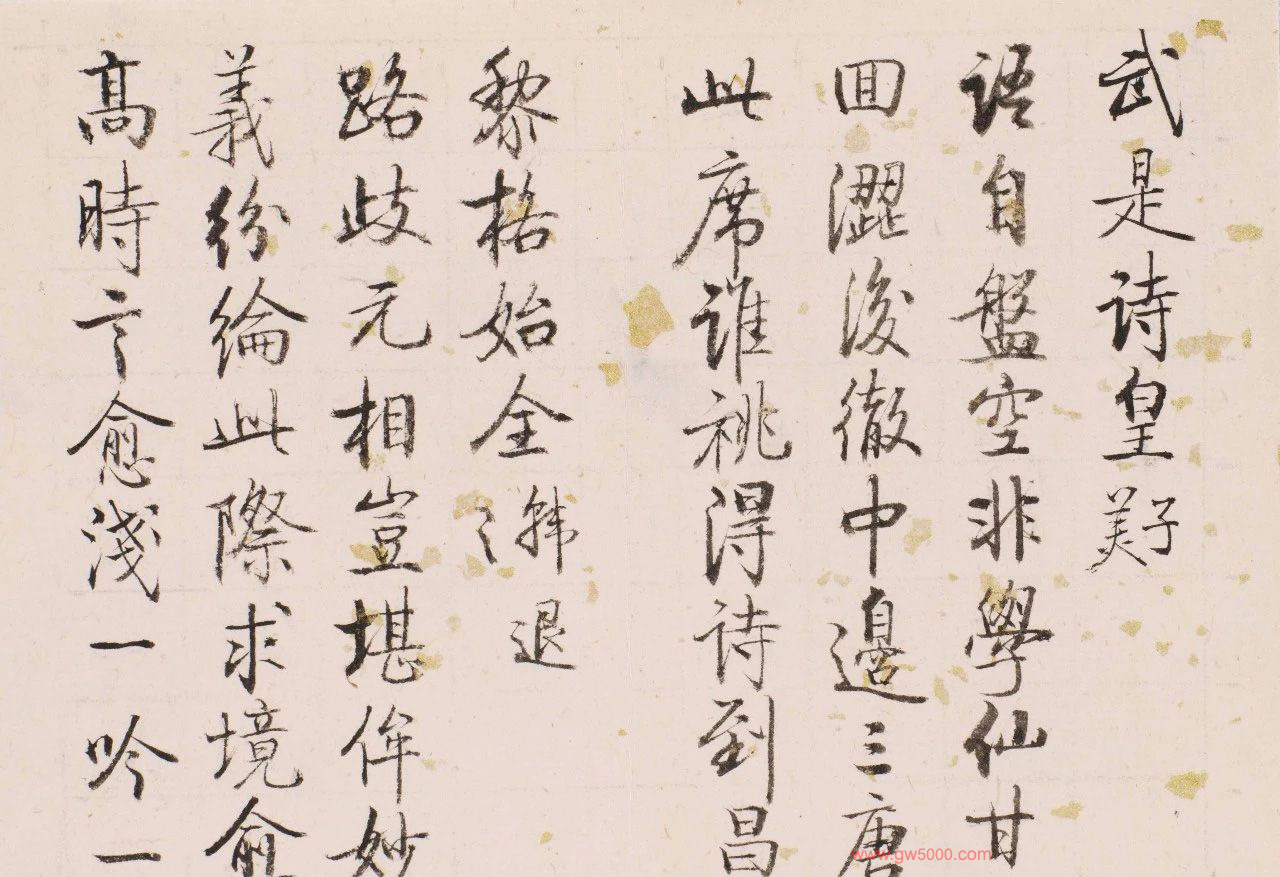 武是诗皇 子美
语自盤空非學仙甘
回澀後徹中邊三唐
此席谁祧得诗到昌
黎格始全 韩退之
路歧元相豈堪侔妙
義纷綸此際求境愈
高時言愈淺一吟一
www.gw5000.com